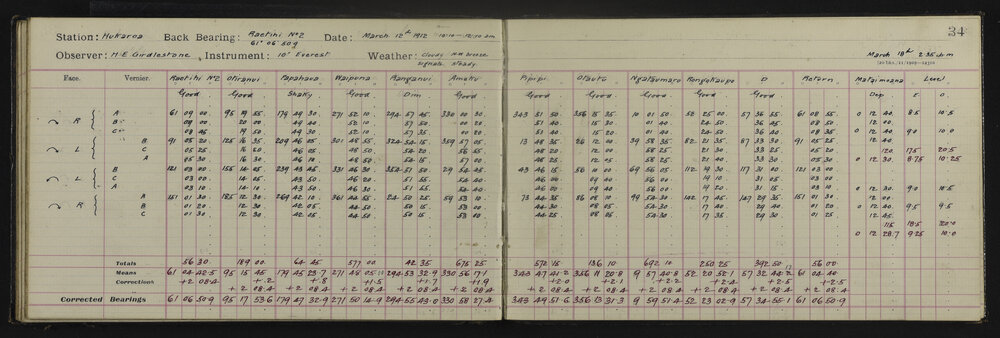 34
Station: Hukaroa Back Bearing: Raetihi No2 61° 06 50.9 Date: March 12th 1912 10.10 – 12.10 am
Observer: H.E Girdlestone, Instrument: 10" Everest Weather: Cloudy N.W breeze signals steady March 18th 2.35 p.m
Face. Vernier. Raetihi No2 Otiranui Tapahaea Waipuna Ranganui Amaku Pipipi Otauto Ngatamaro Rongokaupo D Return Mataimoana Level
Good Good Shaky Good Dim Good Good Good Good Good Good Good Dep. E. O.
R A 61 09 00 95 19 55 179 49 30 271 52 10 294 57 45 330 00 30 343 51 50 356 15 35 10 01 50 52 25 00 57 36 55 61 08 55 0 12 40 8.5 10.5
B 09 00 20 00 49 40 52 10 57 50 00 00 51 40 15 20 01 40 24 50 36 45 08 50 12 00
C 08 45 19 50 49 30 52 10 57 35 00 20 51 40 15 20 01 40 24 50 36 40 08 35 0 12 40 9.0 10.0
L B 91 05 20 125 16 35 209 46 05 301 48 55 324 54 15 359 57 05 13 48 35 26 12 00 39 58 35 82 21 35 87 33 30 91 05 25 12 40
C 05 25 16 35 46 05 48 50 54 20 56 55 48 20 12 00 58 25 21 30 33 25 05 25 120 17.5 20.5
A 05 30 16 30 46 10 48 55 54 15 57 00 48 25 12 05 58 25 21 40 33 30 05 30 0 12 30 8.75 10.25
L B 121 03 00 155 14 05 239 43 45 331 46 30 354 51 50 29 54 45 43 46 15 56 11 00 69 56 05 112 19 30 117 31 00 121 03 00
C 03 00 14 05 43 50 46 20 51 55 54 40 46 00 09 40 56 00 19 10 31 05 03 00
A 03 10 14 10 43 50 46 30 51 55 54 40 46 00 09 40 56 00 19 20 31 15 03 10 0 12 30 9.0 10.5
R A 151 01 30 185 12 30 269 42 10 361 44 55 24 50 25 59 53 10 73 44 35 86 08 10 99 54 30 142 17 45 147 29 35 151 01 30 12 00
B 01 20 12 30 42 05 44 50 50 15 53 10 44 30 08 05 54 30 17 40 29 30 01 20 0 12 40 9.5 9.5
C 01 30 12 30 42 05 44 50 50 15 53 10 44 25 08 05 54 30 17 35 29 30 01 25 12 45
115 18.5 20.0
0 12 28.7 9.25 10.0
Totals 56 30 189 00 64 45 577 00 42 35 675 25 572 15 136 10 692 10 250 25 392 50 56 00
Means 61 04 42.5 95 15 45 179 45 23.7 271 48 05 294 53 32.9 330 56 17.1 343 47 41.2 356 11 20.8 9 57 40.8 52 20 52.1 57 32 44.2 61 04 40
Corrections +.2 +.8 +1.5 +1.7 +1.9 +2.0 +2.1 +2.2 +2.4 +2.5 +2.5
+2 08.4 +2 08.4 +2 08.4 +2 08.4 +2 08.4 +2 08.4 +2 08.4 +2 08.4 +2 08.4 +2 08.4 +2 08.4 +2 08.4
Corrected Bearings 61 06 50.9 95 17 53.6 179 47 32.9 271 50 14.9 294 55 43.0 330 58 27.4 343 49 51.6 356 13 31.3 9 59 51.4 52 23 02.9 57 34 55.1 61 06 50.9